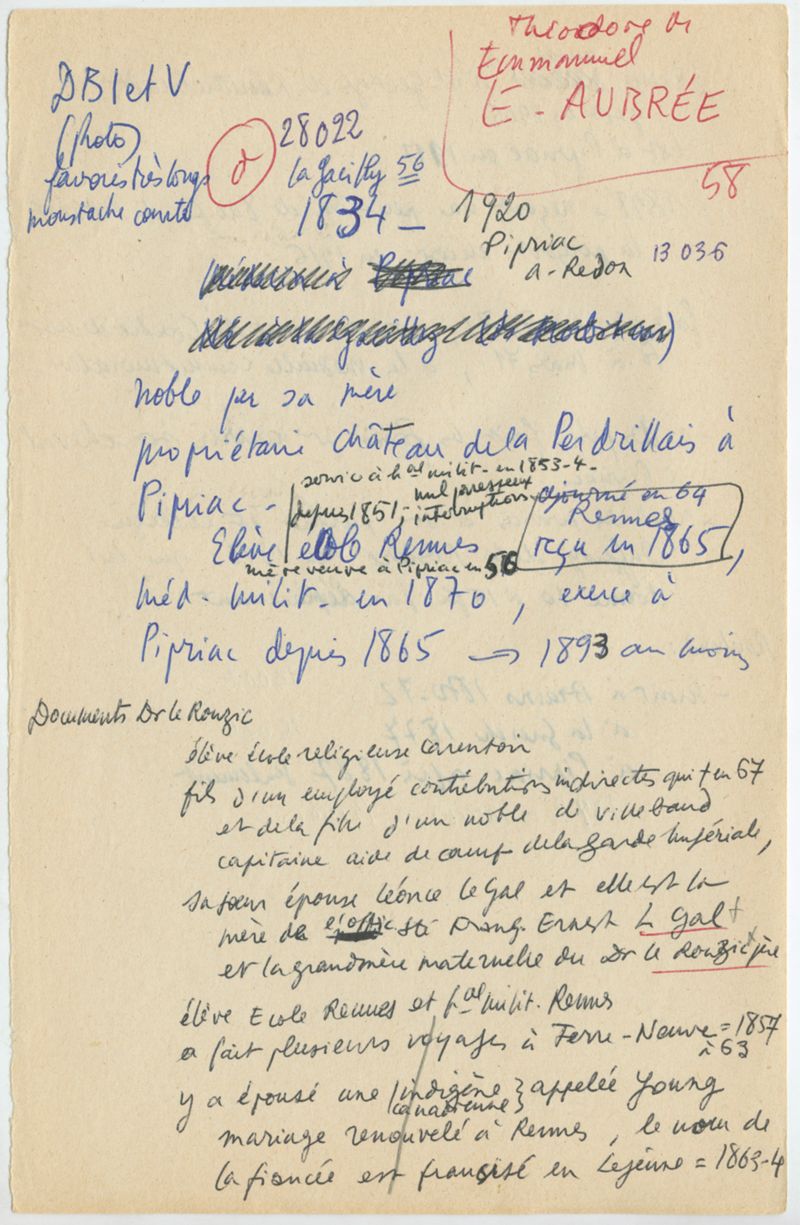 Théodore M
Emmanuel
E - AUBRÉE
58
DB I et V
(photo)
favoris très longs
moustache courte
d
28022
la Gacilly 56
1834 - 1920
Pipriac
a - Redon
13 036
noble par sa mère
propriétaire château de la Perdrillais à
Pipriac -
service à h^al milit - en 1853-4 -
depuis 1851, - nul paresseux
interruptions
ajourné en 64
Rennes
reçu en 1865,
Elève école Rennes
mère veuve à Pipriac en 56
méd. milit - en 1870, exerce à
Pipriac depuis 1865 → 1893 au moins
Documents Dr le Rouzic
élève école religieuse Carentoir
fils d'un employé contributions indirectes qui † en 67
et de la fille d'un noble de Villebaud
capitaine aide de camp de la Garde Impériale,
sa sœur épouse Léonce le Gal et elle est la
mère de l'offic Sté Ernest Le Gal +
et la grandmère maternelle du Dr le Rouzic père
élève Ecole Rennes et h^al milit. Rennes
a fait plusieurs voyages à Terre-Neuve = 1857
à 63
y a épousé une (indigène) appelée Young
canadienne
mariage renouvelé à Rennes, le nom de
la fiancée est francisé en Lejeune = 1863-4